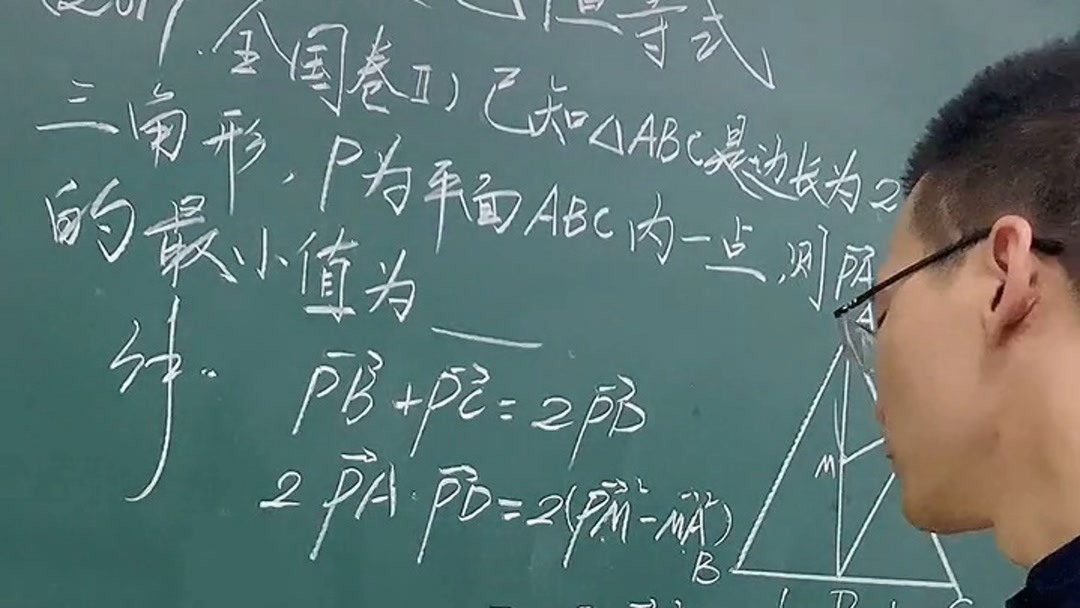 (201
恒等式
.全国卷II)已知△ABC是边长为2
三角形,P为平面ABC内一点,则PA
的最小值为____
A
解..
PB+PC=2PB
M
2PA·PD=2(PM²-MA²)
B D C